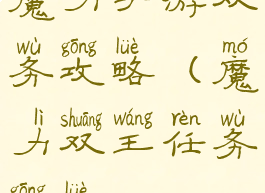 魔 力 手 游 双
wù gōng lüè mó
务攻略（魔
lì shuāng wáng rèn wù
力双王任务
gōng lüè